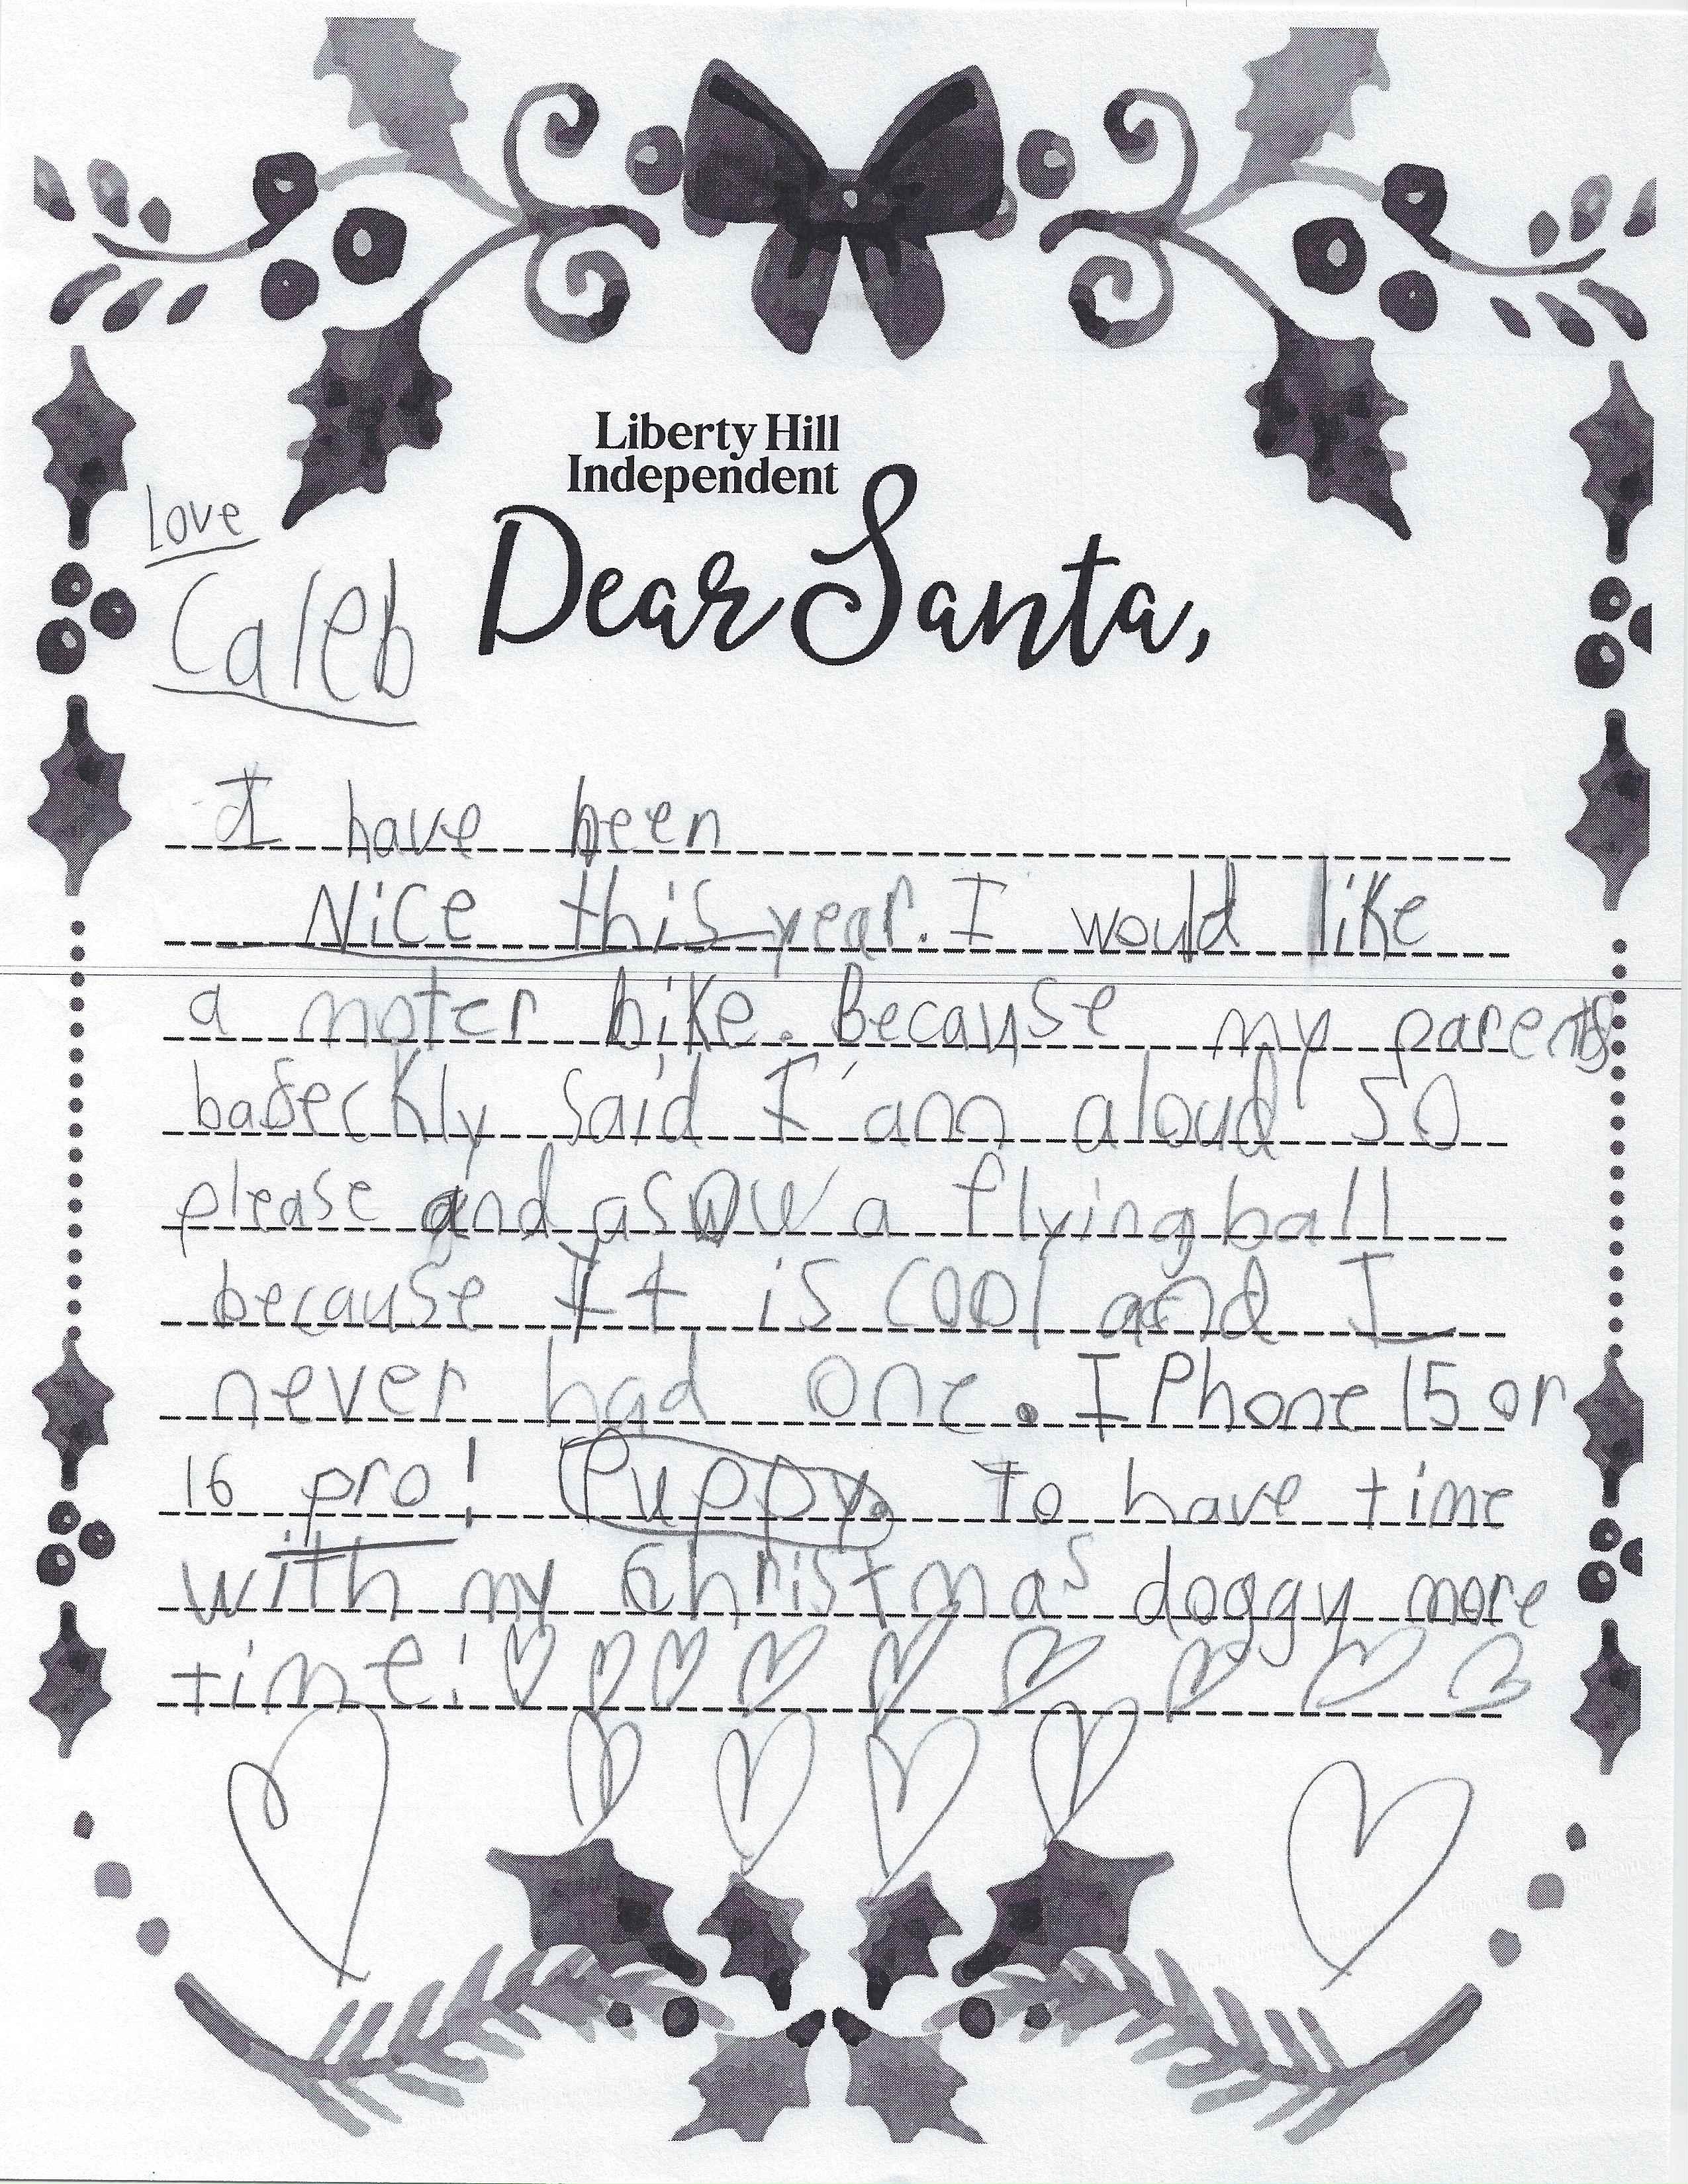 Liberty Hill
Independent
Dear Santa,
Love
Caleb
I have been
Nice this year. I would like
a moter bike. Because my parents
baseckly said I'am aloud so
please and asow a flying ball
because It is cool and I
never had one. I Phone 15 or
16 pro! Puppy. To have time
with my Christmas doggy more
time!